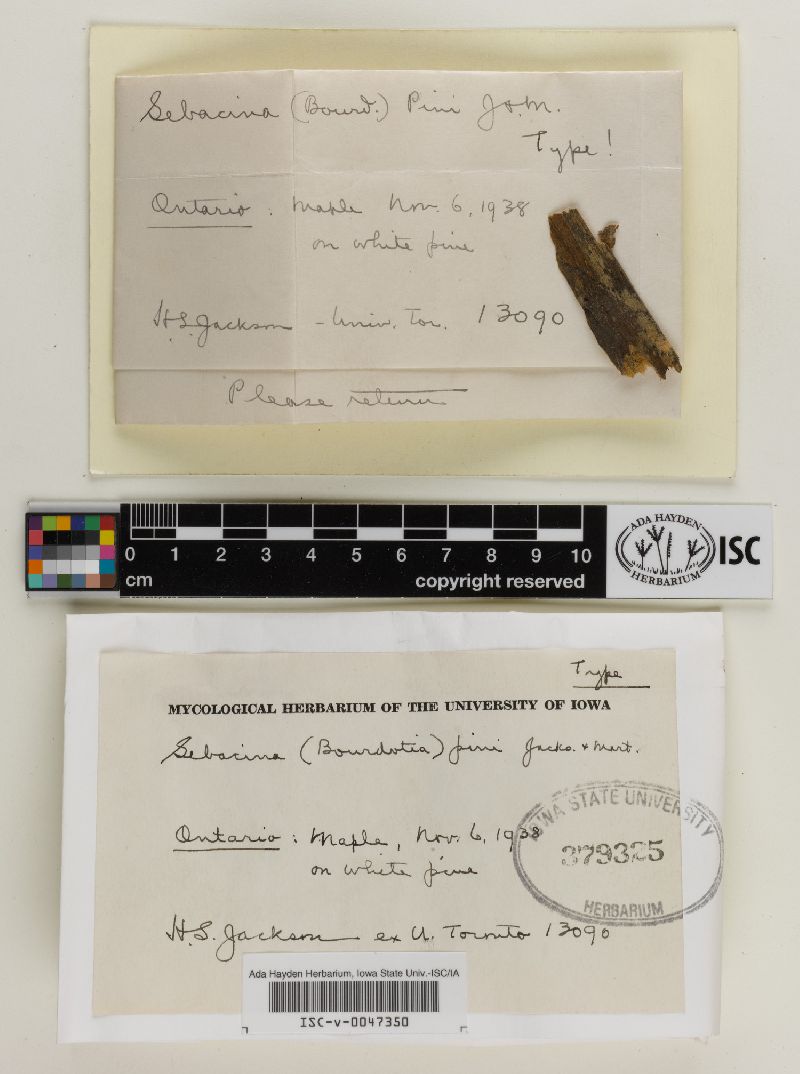 Sebacina (Bourd.) Pini J & M.
Type!
Ontario. Maple Nov. 6, 1938
on white pine
H.S. Jackson - Univ. Tor. 13090
Please return
0 1 2 3 4 5 6 7 8 9 10
cm
copyright reserved
ADA HAYDEN
HERBARIUM
ISC
Type
MYCOLOGICAL HERBARIUM OF THE UNIVERSITY OF IOWA
Sebacina (Bourdotia) pini Jacks. & Mart.
Ontario: Maple, Nov. 6, 1938
on white pine
IOWA STATE UNIVERSITY
379325
HERBARIUM
H.S. Jackson ex U. Toronto 13090
Ada Hayden Herbarium, Iowa State Univ.-ISC/IA
ISC-v-0047350